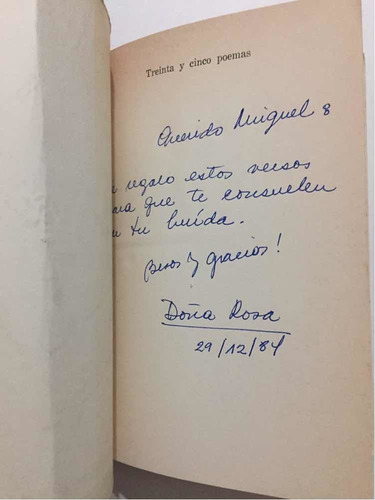 Treinta y cinco poemas
Querido Miguel 8
regalo estos versos
que te consuelen
tu huída.
¡besos y gracias!
Doña Rosa
29/12/84